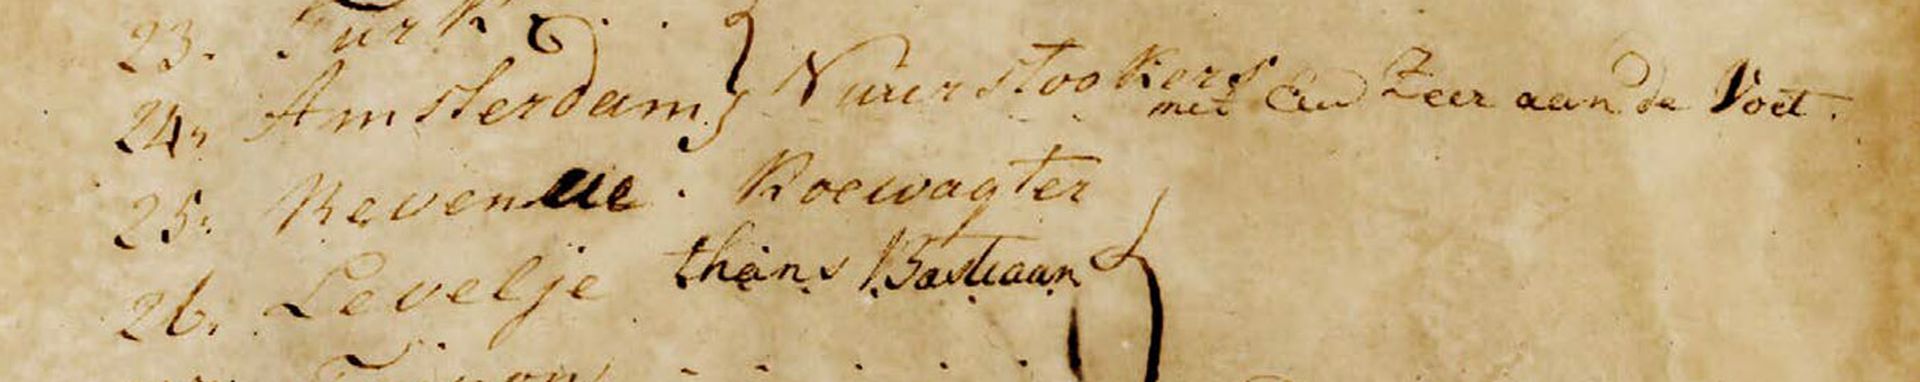 23. Turk
24. Amsterdam } Vuurstookers met een Zeer aan de Voet.
25. Revenue . Koewagter
26. Levelje thans Bastiaan